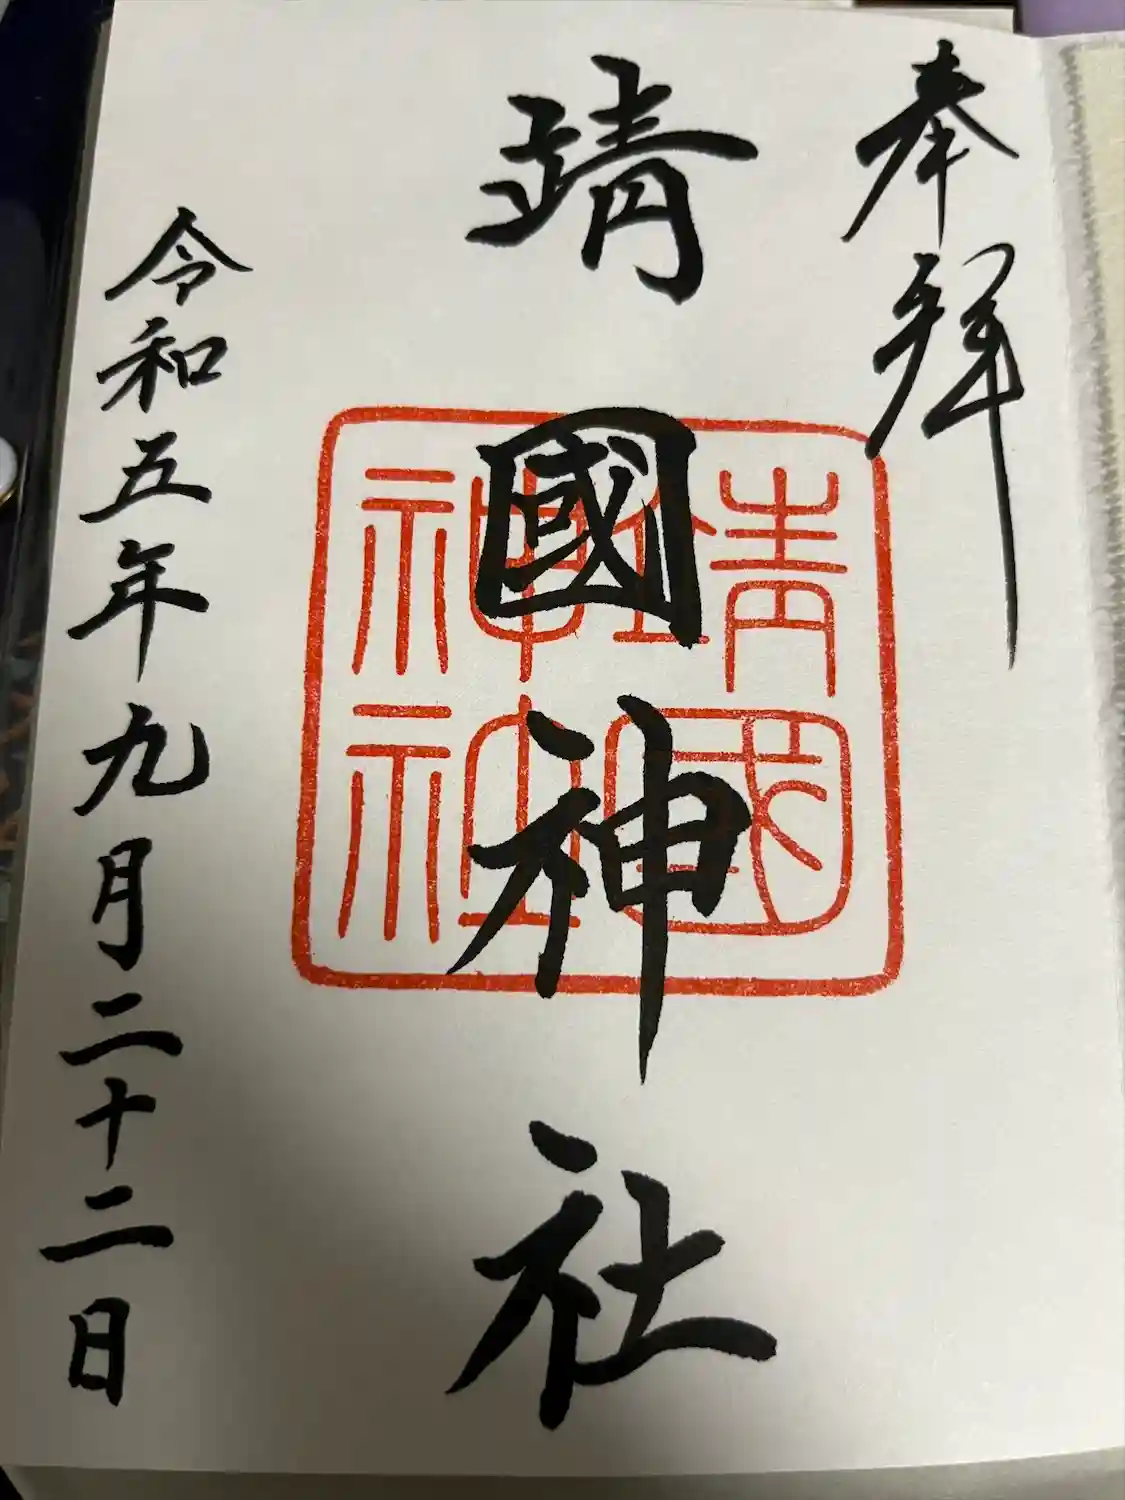 奉拝
靖國神社
靖國神社
令和五年九月二十二日